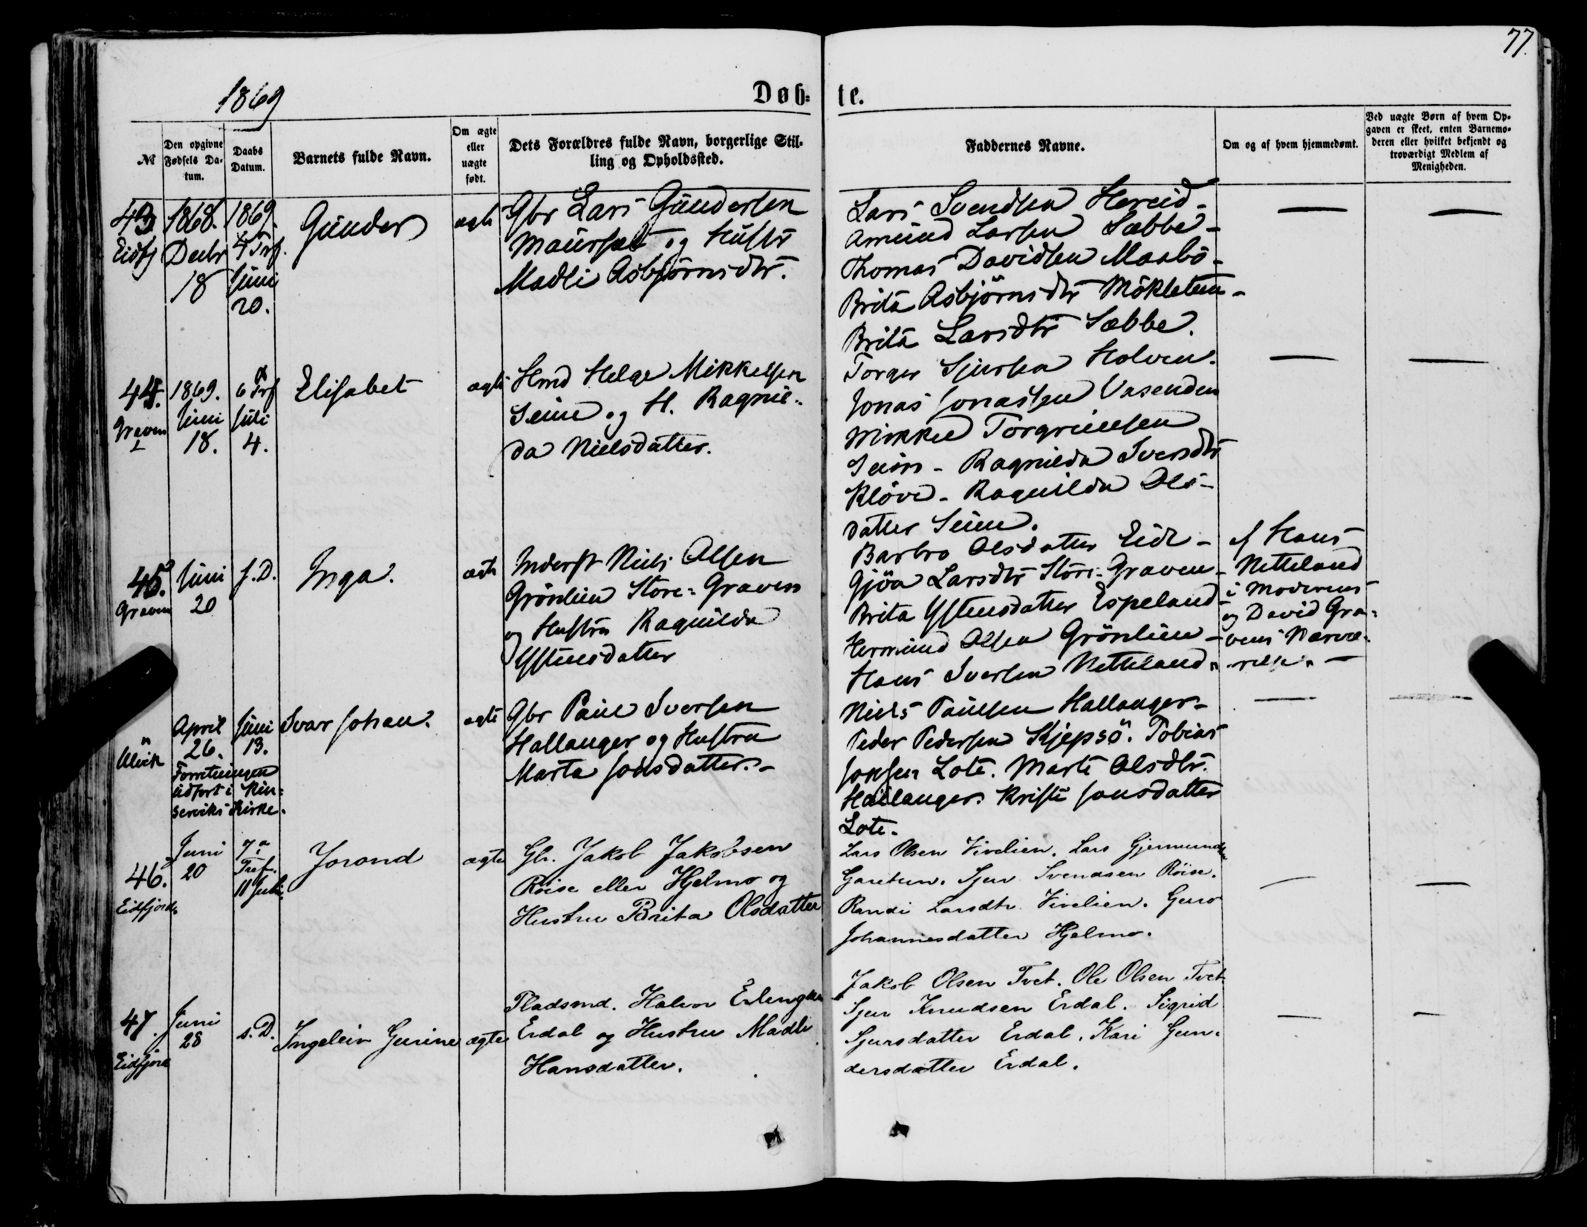 77.
1869
Døb= te.
№
Den opgivne Fødsels Datum.
Daabs Datum.
Barnets fulde Navn.
Om ægte eller uægte født.
Dets Forældres fulde Navn, borgerlige Stilling og Opholdssted.
Faddernes Navne.
Om og af hvem hjemmedømt.
Ved uægte Børn af hvem Opgaven er skeet, enten Barnemoderen eller hvilket bekjendt og troværdigt Medlem af Menigheden.
43.
Eidfj
1868.
Decbr
18
1869.
4 Trf.
Juni
20.
Gunder
ægte
Gbr Lars Gundersen
Maursæt og Hustr
Madli Asbjørnsdtr.
Lars Svendsen Hereid –
Amund Larsen Sæbbe –
Thomas Davidsen Maabø –
Brita Asbjørnsdtr Mökletun –
Brita Larsdtr Sæbbe.
44.
Graven
1869.
Juni
18.
6 Trf
Juli
4.
Elisabet
ægte
Hmd Helge Mikkelsen
Seim og H. Ragnil-
da Nielsdatter.
Torger Sjursen Holven.
Jonas Jonassen Vasenden
Mikkel Torgrimsen
Seim – Ragnilda Iversdtr
Kløve – Ragnilda Ols-
datter Seim.
45.
Graven
Juni
20
s. D.
Inga.
ægte
Inderst Niels Olsen
Grönlien Store-Graven
og Hustru Ragnilda
Ystensdatter
Barbro Olsdatter Eide –
Gjøa Larsdtr Store-Graven –
Brita Ystensdatter Espeland –
Hermund Olsen Grönlien –
Hans Iversen Netteland.
af Hans
Netteland
i Moderens
og David Gra-
vens Nærvæ-
relse. –
Ulvik
April
26.
Juni
13.
Forretningen
udført i Kin-
serviks Kirke.
Ivar Johan.
ægte
Gbr Paul Iversen
Hallanger og Hustru
Marta Jonsdatter. –
Niels Paulsen Hallanger –
Peder Pedersen Skjepsö. Tobias
Jonsen Lote. Marte Olsdtr.
Hallanger. Kristi Jonsdatter
Lote.
46.
Eidfjord.
Juni
20
7de
Tref.
11 Juli.
Jorond
ægte
Gbr. Jakob Jakobsen
Røise eller Hjelmo og
Hustru Brita Olsdatter
Lars Olsen Vivelien. Lars Gjermunds.
Garetun. Sjur Svendsen Røise.
Randi Larsdtr Vivelien. Guro
Johannesdatter Hjelmo.
47.
Eidfjord
Juni
28
s. D.
Ingeleiv Gurine
ægte
Pladsmd. Halvor Erlingsen
Erdal og Hustru Madli
Hansdatter.
Jakob Olsen Tvet. Ole Olsen Tvet.
Sjur Knudsen Erdal. Sigrid
Sjursdatter Erdal. Kari Gun-
dersdatter Erdal.